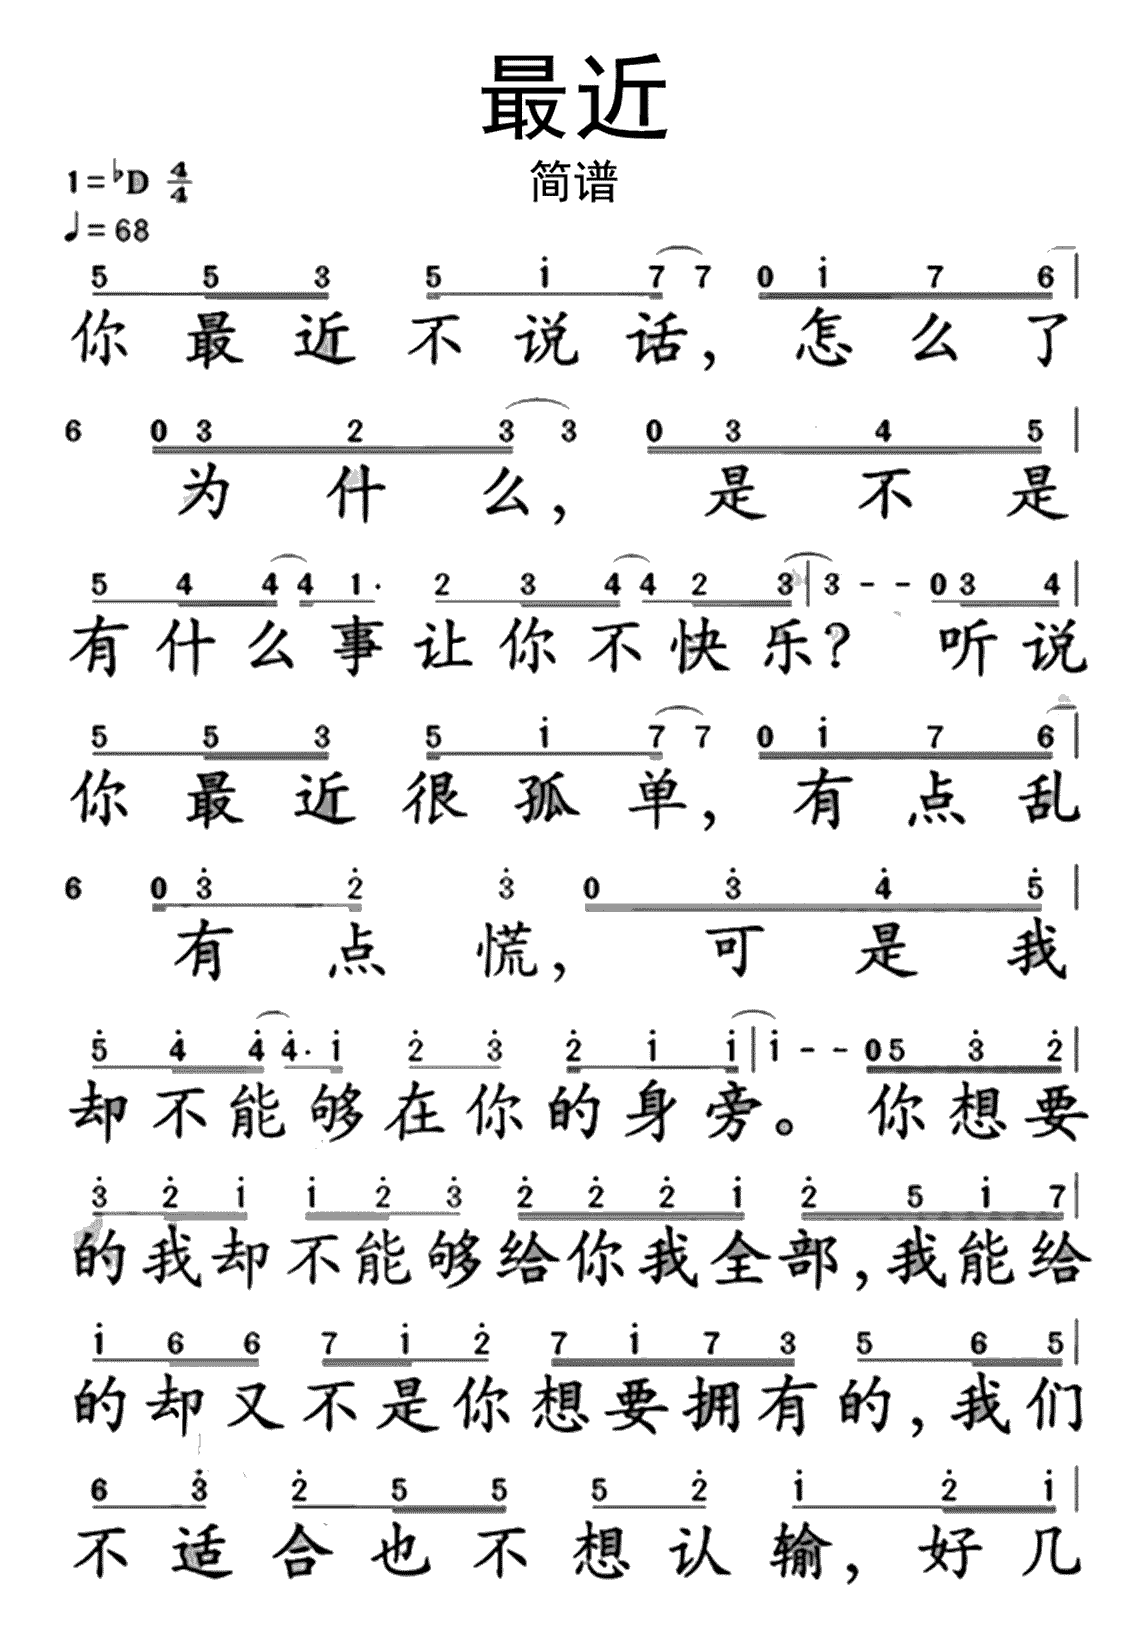 最近
简谱
1=♭D 4/4
♩=68
5 5 3 5 i 7 7 0 i 7 6 |
你最近不说话，怎么了
6 0 3 2 3 3 0 3 4 5 |
为什么，是不是
5 4 4 4 1· 2 3 4 4 2 3 | 3 - - 0 3 4 |
有什么事让你不快乐？ 听说
5 5 3 5 i 7 7 0 i 7 6 |
你最近很孤单，有点乱
6 0 3̇ 2̇ 3̇ 0 3̇ 4̇ 5̇ |
有点慌，可是我
5̇ 4̇ 4̇ 4̇· i 2̇ 3̇ 2̇ i i | i - - 0 5 3̇ 2̇ |
却不能够在你的身旁。 你想要
3̇ 2̇ i i 2̇ 3̇ 2̇ 2̇ 2̇ i 2̇ 5 i 7 |
的我却不能够给你我全部，我能给
i 6 6 7 i 2̇ 7 i 7 3 5 6 5 |
的却又不是你想要拥有的，我们
6 3̇ 2̇ 5 5 5 2̇ i 2̇ i |
不适合也不想认输，好几